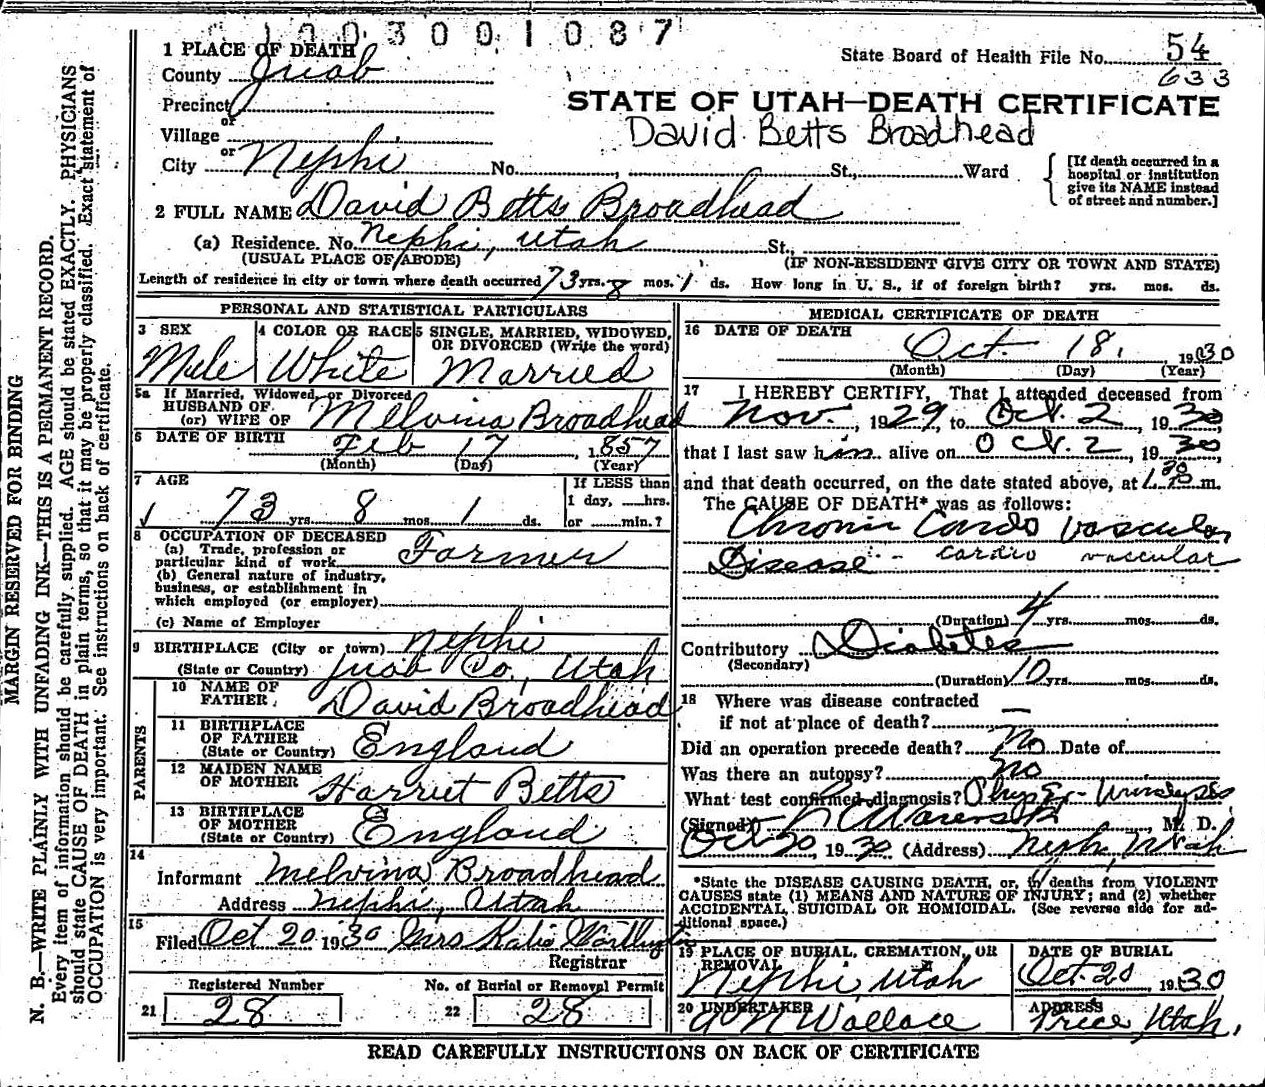 1003001087
1 PLACE OF DEATH
State Board of Health File No. 54
County Juab
633
Precinct
STATE OF UTAH—DEATH CERTIFICATE
or
Village
David Betts Broadhead
or
City Nephi No. , St., Ward
[If death occurred in a
hospital or institution
give its NAME instead
of street and number.]
2 FULL NAME David Betts Broadhead
(a) Residence. No. Nephi, Utah St.,
(USUAL PLACE OF ABODE) (IF NON-RESIDENT GIVE CITY OR TOWN AND STATE)
Length of residence in city or town where death occurred 73 yrs. 8 mos. 1 ds. How long in U. S., if of foreign birth? yrs. mos. ds.
PERSONAL AND STATISTICAL PARTICULARS
3 SEX
Male
4 COLOR OR RACE
White
5 SINGLE, MARRIED, WIDOWED,
OR DIVORCED (Write the word)
Married
5a If Married, Widowed, or Divorced
HUSBAND OF
(or) WIFE OF Melvina Broadhead
6 DATE OF BIRTH Feb 17, 1857
(Month) (Day) (Year)
7 AGE
73 yrs. 8 mos. 1 ds.
If LESS than
1 day, hrs.
or min.?
8 OCCUPATION OF DECEASED
(a) Trade, profession or
particular kind of work Farmer
(b) General nature of industry,
business, or establishment in
which employed (or employer)
(c) Name of Employer
9 BIRTHPLACE (City or town) Nephi
(State or Country) Juab Co., Utah
PARENTS
10 NAME OF
FATHER David Broadhead
11 BIRTHPLACE
OF FATHER
(State or Country) England
12 MAIDEN NAME
OF MOTHER Harriet Betts
13 BIRTHPLACE
OF MOTHER
(State or Country) England
14
Informant Melvina Broadhead
Address Nephi, Utah
15
Filed Oct 20 1930 Mrs Katie
Registrar
Registered Number
21 28
No. of Burial or Removal Permit
22 28
MEDICAL CERTIFICATE OF DEATH
16 DATE OF DEATH
Oct. 18, 1930
(Month) (Day) (Year)
17 I HEREBY CERTIFY, That I attended deceased from
Nov. , 1929, to Oct. 2 , 1930,
that I last saw him alive on Oct. 2 , 1930,
and that death occurred, on the date stated above, at m.
The CAUSE OF DEATH* was as follows:
Chronic Cardo Vascular
Disease - cardio vascular
(Duration) 4 yrs. mos. ds.
Contributory Diabetes
(Secondary)
(Duration) 10 yrs. mos. ds.
18 Where was disease contracted
if not at place of death? —
Did an operation precede death? No Date of
Was there an autopsy? No
What test confirmed diagnosis? Phys Ex - Urinalysis
(Signed) M. D.
Oct 20, 1930 (Address) Nephi, Utah
*State the DISEASE CAUSING DEATH, or, in deaths from VIOLENT
CAUSES state (1) MEANS AND NATURE OF INJURY; and (2) whether
ACCIDENTAL, SUICIDAL OR HOMICIDAL. (See reverse side for ad-
ditional space.)
19 PLACE OF BURIAL, CREMATION, OR
REMOVAL
Nephi, Utah
DATE OF BURIAL
Oct. 20 1930
20 UNDERTAKER
A N Wallace
ADDRESS
Price, Utah.
READ CAREFULLY INSTRUCTIONS ON BACK OF CERTIFICATE
MARGIN RESERVED FOR BINDING
N. B.—WRITE PLAINLY WITH UNFADING INK—THIS IS A PERMANENT RECORD.
Every item of information should be carefully supplied. AGE should be stated EXACTLY. PHYSICIANS
should state CAUSE OF DEATH in plain terms, so that it may be properly classified. Exact statement of
OCCUPATION is very important. See instructions on back of certificate.